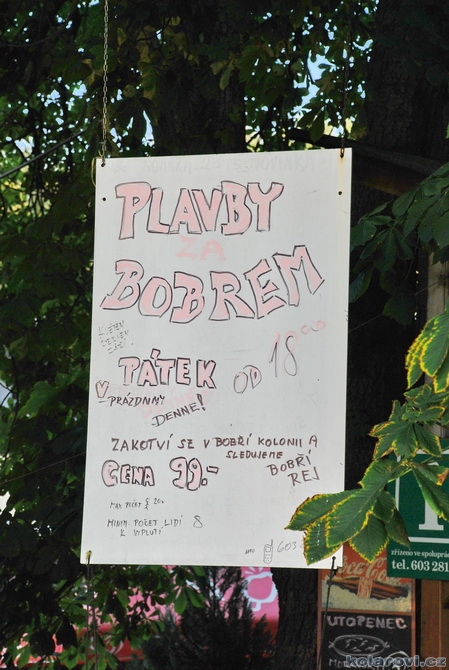 PLAVBY
ZA
BOBREM
PÁTEK OD 18
V PRÁZDNINY
DENNE!
ZAKOTVÍ SE V BOBŘÍ KOLONII A
SLEDUJEME
BOBŘÍ
REJ
CENA 99.-
MAX POČET
MINIM. POČET LIDÍ 8
K VIPLUTÍ
603
zřízeno ve spoluprác
tel. 603 281
UTOPENEC
kolarovi.cz